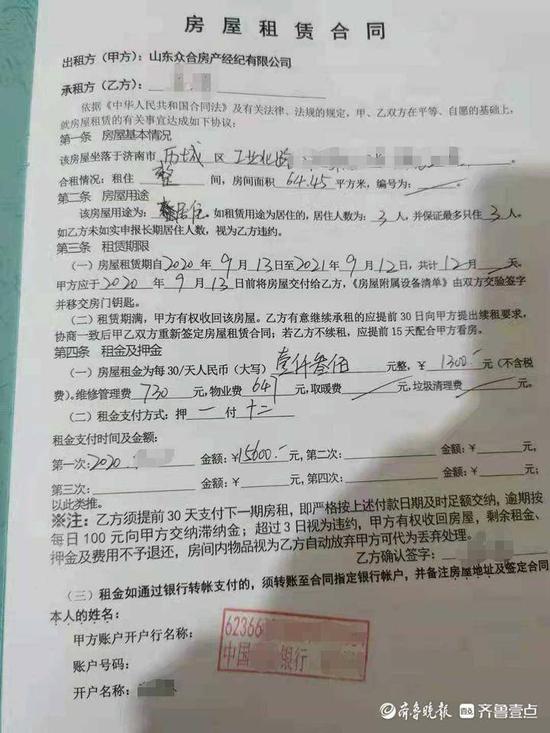 房屋租赁合同
出租方（甲方）：山东众合房产经纪有限公司
承租方（乙方）：
依据《中华人民共和国合同法》及有关法律、法规的规定，甲、乙双方在平等、自愿的基础上，
就房屋租赁的有关事宜达成如下协议：
第一条 房屋基本情况
该房屋坐落于济南市 历城 区 工业北路
合租情况：租住 整 间，房间面积 64.45 平方米，编号为：
第二条 房屋用途
该房屋用途为：居住。如租赁用途为居住的，居住人数为：3人，并保证最多只住3人。
如乙方未如实申报长期居住人数，视为乙方违约。
第三条 租赁期限
（一）房屋租赁期自2020年9月13日至2021年9月12日，共计12月 天。
甲方应于2020年9月13日前将房屋交付给乙方，《房屋附属设备清单》由双方交验签字
并移交房门钥匙。
（二）租赁期满，甲方有权收回该房屋。乙方有意继续承租的应提前30日向甲方提出续租要求，
协商一致后甲乙双方重新签定房屋租赁合同；若乙方不续租，应提前15天配合甲方看房。
第四条 租金及押金
（一）房屋租金为每30/天人民币（大写）壹仟叁佰 元整，￥1300.-元（不含税
费）。维修管理费 730 元，物业费 641 元，取暖费 元，垃圾清理费 元。
（二）租金支付方式：押 一 付 十二
租金支付时间及金额：
第一次：2020. 金额：￥15600.-元，第二次： 金额：￥ 元，
第三次： 金额：￥ 元，第四次： 金额：￥ 元，
以此类推。
※注：乙方须提前30天支付下一期房租，即严格按上述付款日期及时足额交纳，逾期按
每日100元向甲方交纳滞纳金；超过3日视为违约，甲方有权收回房屋，剩余租金、
押金及费用不予退还，房间内物品视为乙方自动放弃甲方可代为丢弃处理。
乙方确认签字：
（三）租金如通过银行转帐支付的，须转账至合同指定银行帐户，并备注房屋地址及签定合同
本人的姓名：
甲方账户开户行名称：
账户号码：
开户名称：
62366
中国 银行
齐鲁晚报 齐鲁壹点